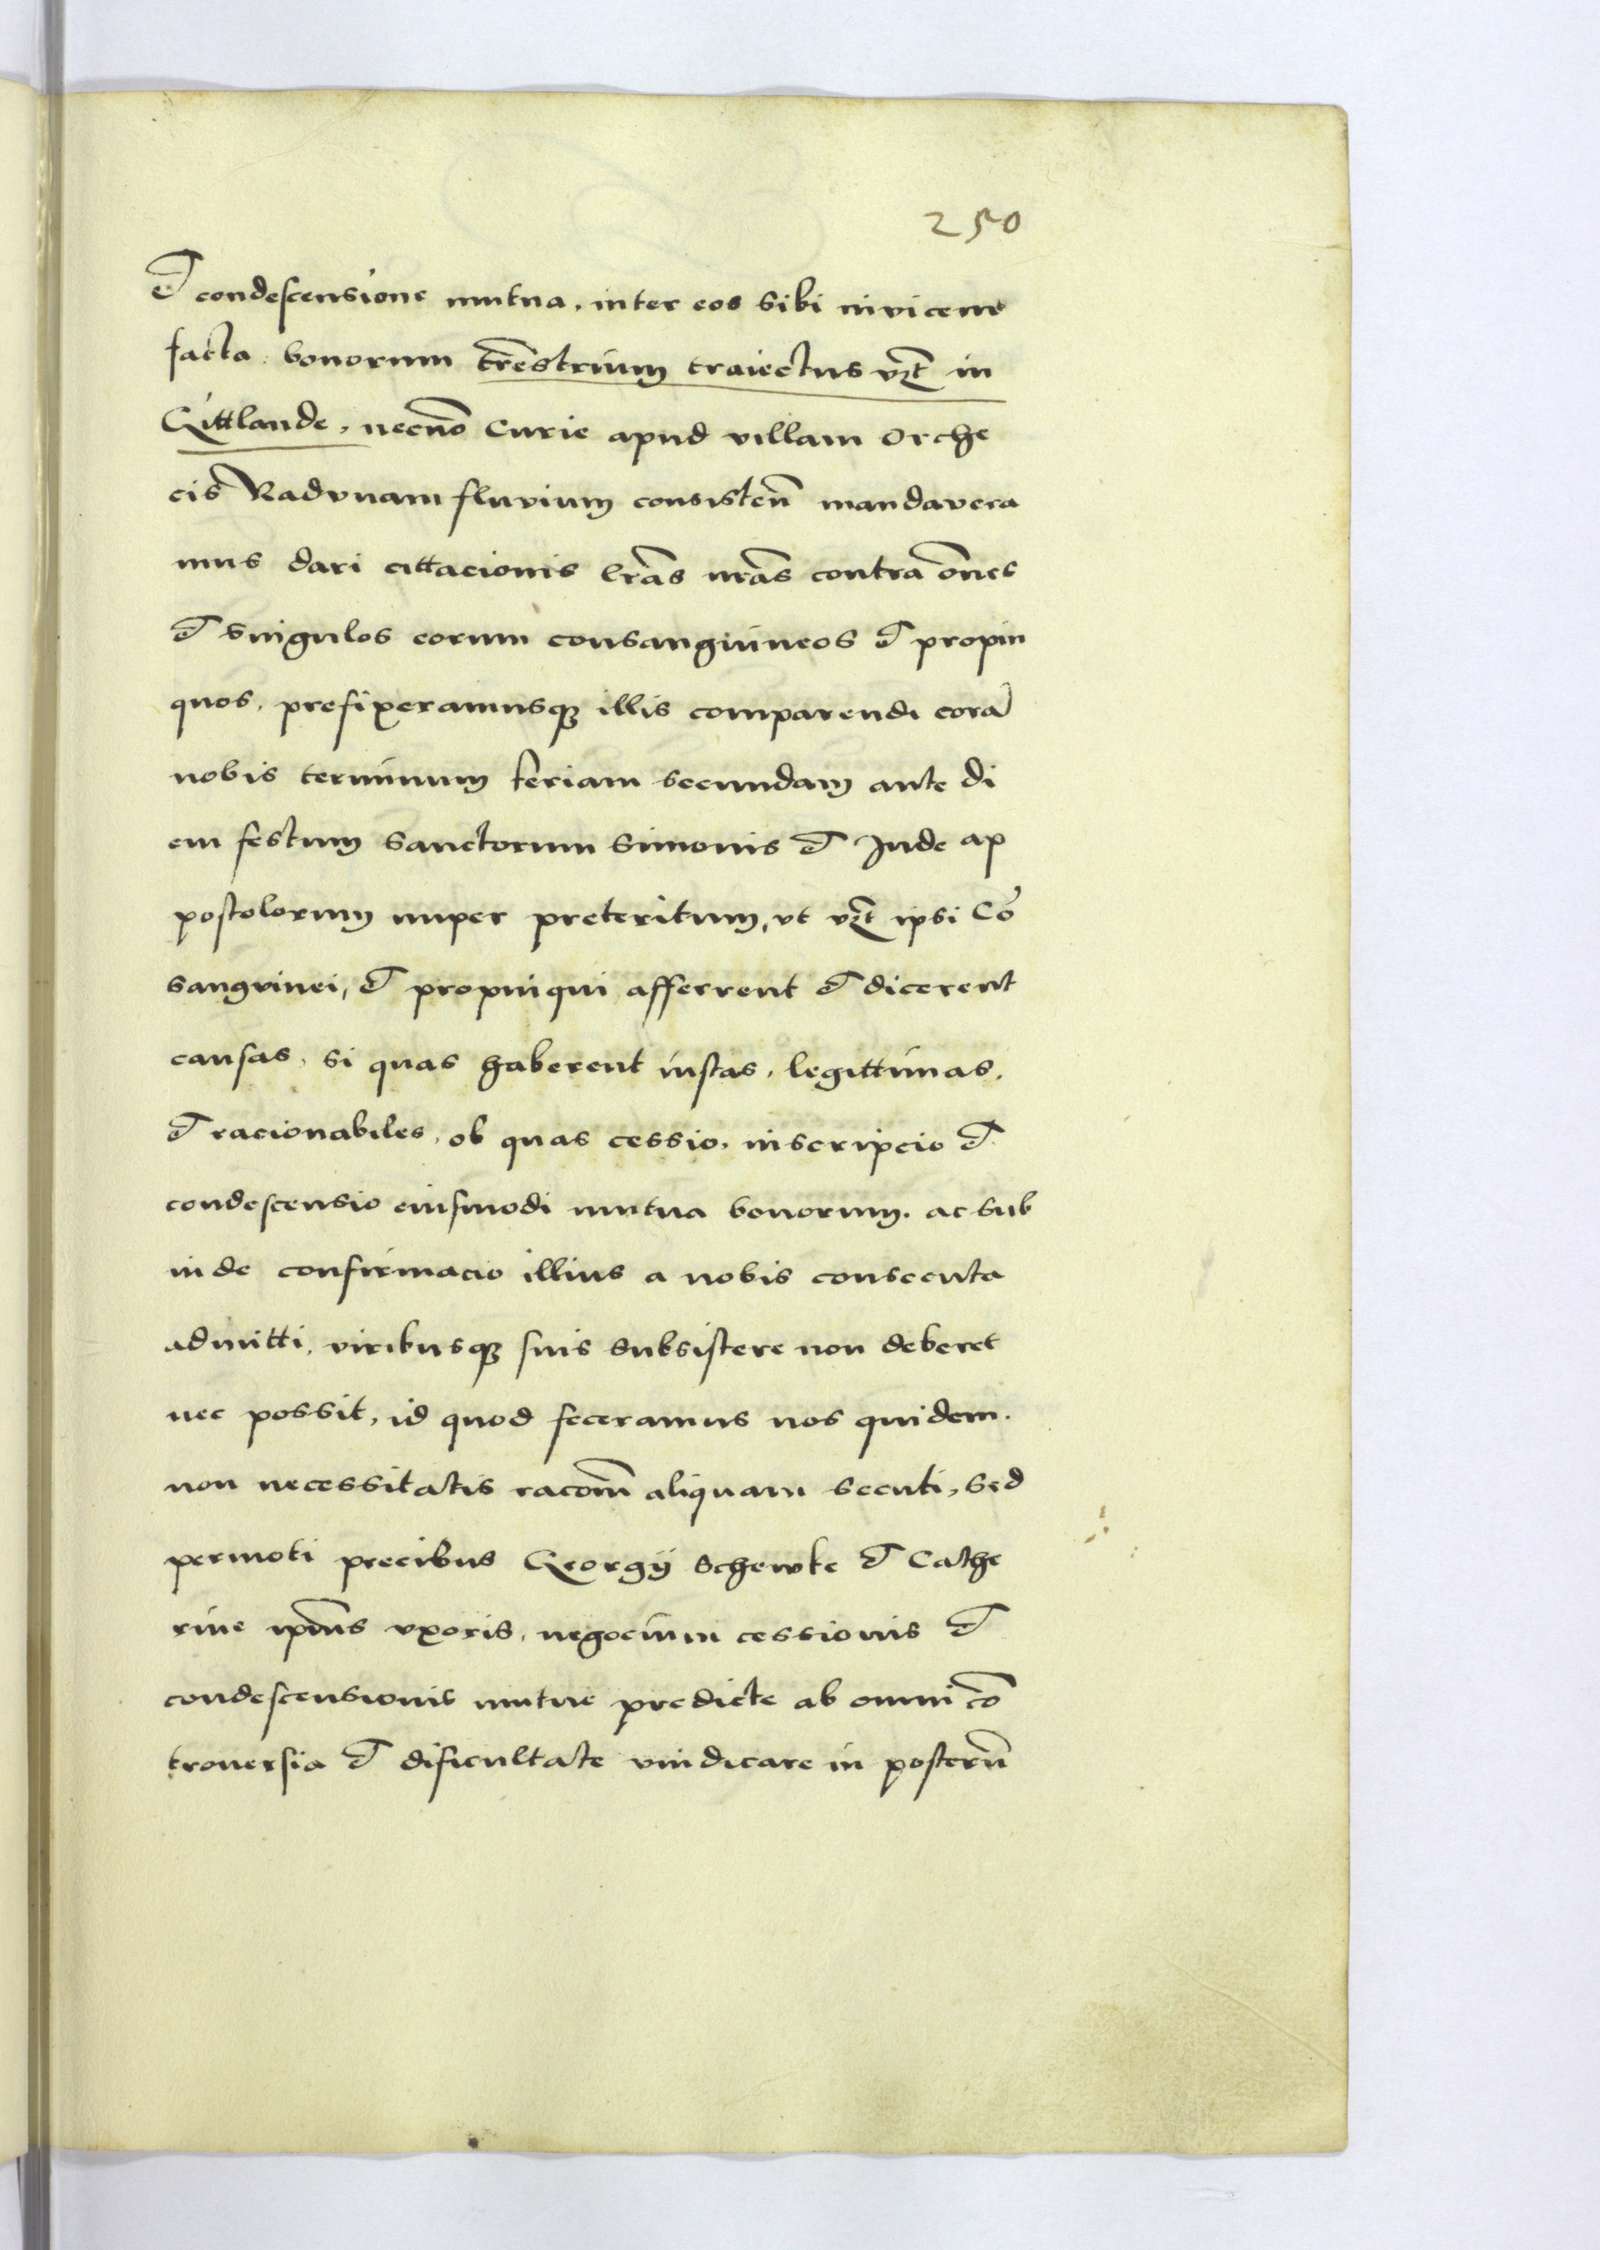 250
et condescensione mutua, inter eos sibi invicem
facta bonorum tre̅strium traiectus vz̅t in
Gittlande, necno̅ Curie apud villam Orche
cis Radunam fluvium consisten̅ mandavera
mus dari cittacionis lr̅as nr̅as contra om̅es
et singulos eorum consanguineos et propin
quos, prefixeramusqꝫ illis comparendi cora̅
nobis terminum feriam secundam ante di
em festum Sanctorum Simonis et Jude ap
postolorum nuper preteritum, vt vz̅t ipsi Co̅
sangvinei, et propinqui afferrent et dicerent
causas, si quas haberent iustas, legittimas,
et racionabiles, ob quas cessio, inscripcio et
condescensio eiusmodi mutua bonorum, ac sub
inde confirmacio illius a nobis consecuta
admitti, viribusqꝫ suis subsistere non deberet
nec possit, id quod feceramus nos quidem.
non necessitatis racom̅ aliquam secuti, sed
permoti precibus Georgij Schewke et Cathe
rine ipi̅us vxoris, negocium cessionis et
condescensionis mutue predicte ab omni co̅
trouersia et dificultate vindicare in posteru̅